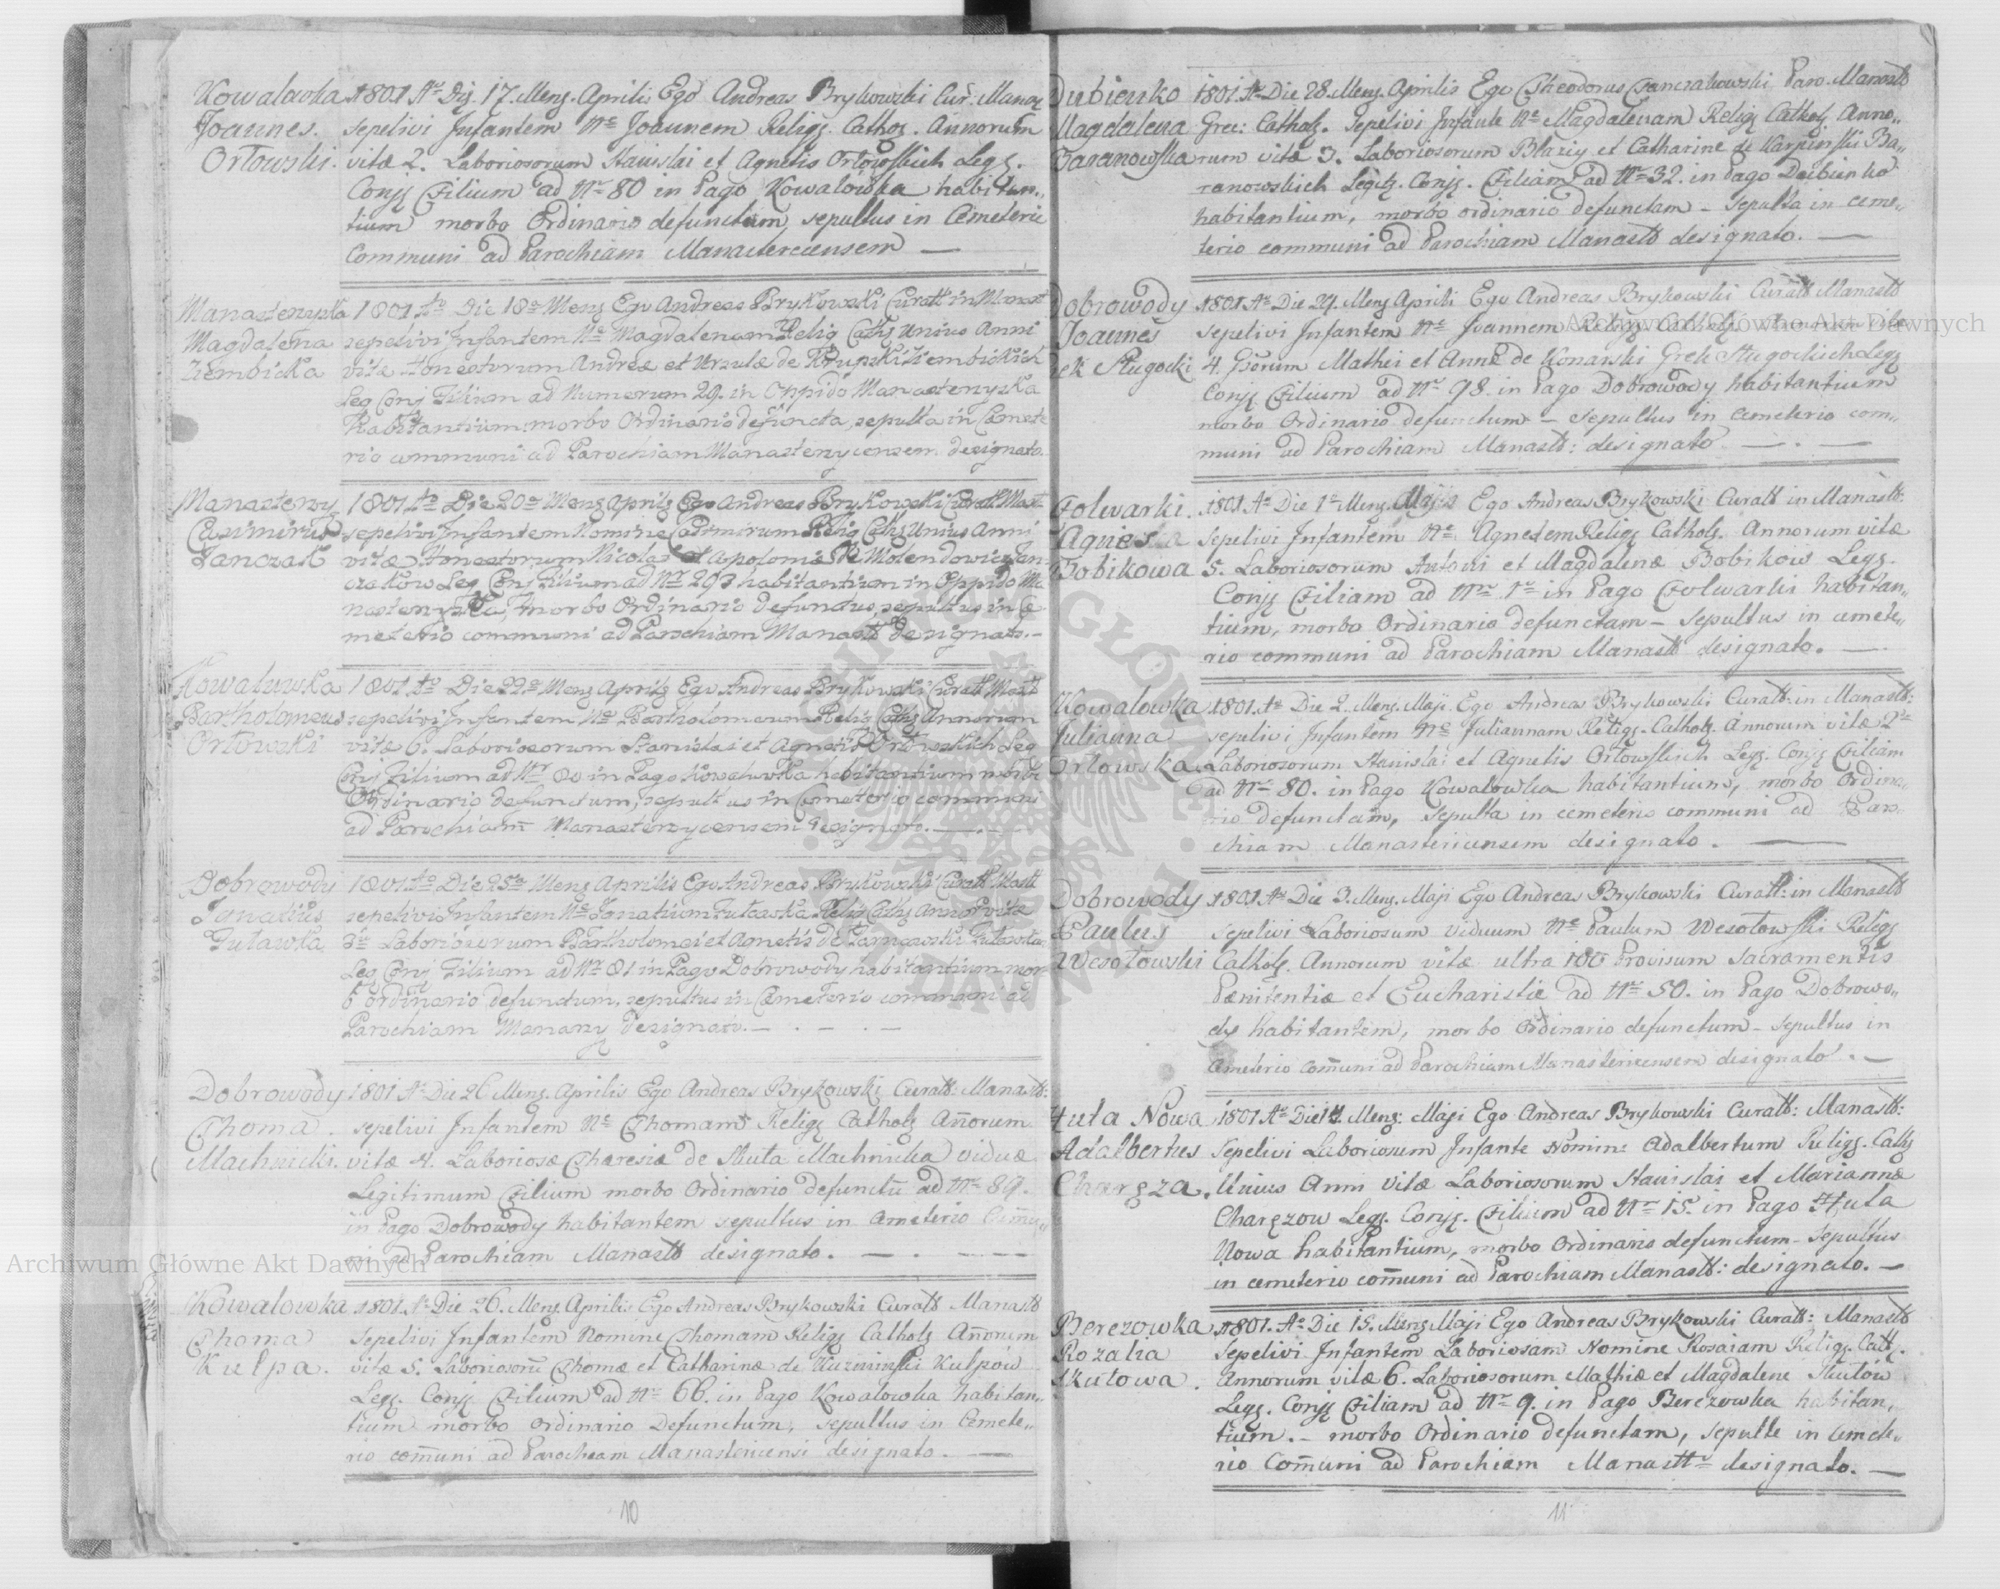 Kowalowka
Joannes.
Ortowski.
1801 Ao Die 17. Mens. Aprilis Ego Andreas Brykowski Cur: Manas
sepelivi Infantem Ne Joannem Religs. Cathos. Annorum
vitæ 2. Laboriosorum Stanislai et Agnetis Ortowskich Legs.
Conjs Filium ad Nr 80 in Pago Kowalowka habitan„
tium morbo Ordinario defunctum, sepultus in Cemeterio
Communi ad Parochiam
Manasterzyska
Magdalena
Ziembicka
1801 Ao Die 18a Mens Ego Andreas Brykowski Curatt in Manast
sepelivi Infantem Ne Magdalenam Relig Caths Unius Anni
vitæ Honestorum Andreæ et Ursulæ de Krupski Ziembickich
Leg Conj Filiam ad Numerum 29. in Oppido Manasterzyska
habitantium: morbo Ordinario defuncta, sepulta in Cæmete
rio communi ad Parochiam Manasterzycensem designato.
Manasterzy
Casimirus
Janczak
1801 Ao Die 20a Mens Aprils Ego Andreas Brykowski Curatt Mast
sepelivi Infantem Nomine Casimirum Relig Caths Unius Anni
vitæ Honestorum Nicolai et Apolonia de Molendowicz Jan
czaków Leg Conj Filium ad Nr 293 habitantium in Oppido Ma
nasterzyska, morbo Ordinario defunctus, sepultus in Cæ
meterio communi ad Parochiam Manastt designato.
Kowaluwka
Bartholomeus
Ortowski
1801 Ao Die 22a Mens Aprils Ego Andreas Brykowski Curatt Mast
sepelivi Infantem Ne Bartholomeum Relig Caths Annorum
vitæ 6. Laboriosorum Stanislai et Agnetis Ortowskich Leg
Conj Filium ad Nr 80 in Pago Kowaluwka habitantium morbo
Ordinario defunctum, sepultus in Cæmeterio communi
ad Parochiam Manasterzycensem designato.
Dobrowody
Ignatius
Putawka
1801 Ao Die 25ta Mens Aprilis Ego Andreas Brykowski Curatt Mast
sepelivi Infantem Ne Ignatium Relig Caths Annor vitæ
Laboriosorum Bartholomei et Agnetis de
Leg Conj Filium ad Nr 81 in Pago Dobrowody habitantium mor
b ordinario defunctum, sepultus in Cæmeterio communi ad
Parochiam designato.
Dobrowody
Thoma.
Machnicki.
1801 Ao Die 26 Mens. Aprilis Ego Andreas Brykowski Curatt: Manastt:
sepelivi Infantem Ne Thomam Religs Cathols Añorum
vitæ 4. Laboriosæ Theresiæ de Skuta Machnicka viduæ
Legitimum Filium morbo Ordinario defunctũ ad Nr 89.
in Pago Dobrowody habitantem sepultus in Cmeterio
ni ad Parochiam Manastt designato.
Kowalowka
Thoma
Kulpa.
1801. Ao Die 26. Mens. Aprilis Ego Andreas Brykowski Curatt Manastt
Sepelivi Infantem Nomine Thomam Religs Cathols Añorum
vitæ 5. Laboriosorũ Thomæ et Catharinæ de Kuzminski Kulpów
Legs. Conjs Filium ad Nr 66. in Pago Kowalowka habitan„
tium morbo Ordinario Defunctum, sepultus in Cemete„
rio com̃uni ad Parochiam Manastericensi designato.
10
Dubienko
Magdalena
Baranowska
1801. Ao Die 28. Mens. Aprilis Ego Theodorus Paro. Manastt
Grec: Cathols. Sepelivi Infante Ne Magdalenam Religs Cathols Anno„
rum vitæ 3. Laboriosorum Blazij et Catharine de Karpinski Ba„
ranowskich Legits. Conjs. Filiam ad Nr 32. in Pago Dubienko
habitantium, morbo ordinario defunctam – sepulta in ceme„
terio communi ad Parochiam Manastt designato.
Dobrowody
Joannes
Stugocki
1801. Ao Die 29. Mens Aprili Ego Andreas Brykowski Curatt Manastt
sepelivi Infantem Ne Joannem Religs Cathols Annorum vitæ
4. Mathei et Annæ de Konarski Stugockich Legs
Conjs Filium ad Nr 98. in Pago Dobrowody habitantium
morbo Ordinario defunctum – sepultus in cemeterio com„
muni ad Parochiam Manastt: designato
Folwarki.
Agnesa
Bobikowa
1801. Ao Die 1a Mens. Majis Ego Andreas Brykowski Curatt in Manastt:
Sepelivi Infantem Ne Agnetem Religs Cathols. Annorum vitæ
5. Laboriosorum Antoni et Magdalenæ Bobikow Legs.
Conjs Filiam ad Nr 1o in Pago Folwarki habitan„
tium, morbo Ordinario defunctam – sepultus in cemete„
rio communi ad Parochiam Manastt designato.
Kowalowka
Julianna
Ortowska
1801. Ao Die 2. Mens. Maji. Ego Andreas Brykowski Curatt: in Manastt:
sepelivi Infantem Ne Juliannam Religs. Cathols. Annorum vitæ 2
Laboriosorum Stanislai et Agnetis Ortowskich Legs. Conjs Filiam
ad Nr 80. in Pago Kowalowka habitantium, morbo Ordina„
rio defunctam, sepulta in cemeterio communi ad Paro„
chiam Manastericensem designato.
Dobrowody
Paulus
Wesotowski
1801. Ao Die 3. Mens. Maji Ego Andreas Brykowski Curatt: in Manastt
Sepelivi Laboriosum viduum Ne Paulum Wesotowski Religs
Cathols. Annorum vitæ ultra 100 Provisum Sacramentis
Pænitentiæ et Eucharistiæ ad Nr 50. in Pago Dobrowo„
dy habitantem, morbo ordinario defunctum – sepultus in
cemeterio com̃uni ad Parochiam Manastericensem designato.
Huta Nowa
Adalbertus
Charęza.
1801. Ao Die 14. Mens: Maji Ego Andreas Brykowski Curatt: Manastt:
Sepelivi Laboriosum Infante Nomine Adalbertum Religs. Caths
Unius Anni vitæ Laboriosorum Stanislai et Mariannæ
Charęzow Legs. Conjs. Filium ad Nr 15. in Pago Huta
Nowa habitantium, morbo Ordinario defunctum – Sepultus
in cemeterio com̃uni ad Parochiam Manastt: designato.
Berezowka
Rozalia
Skutowa.
1801. Ao Die 15. Mens Maji Ego Andreas Brykowski Curatt: Manastt
Sepelivi Infantem Laboriosam Nomine Rosaiam Religs. Catt.
Annorum vitæ 6. Laboriosorum Mathiæ et Magdalene Skutow
Legs. Conjs Filiam ad Nr 9. in Pago Berezowka habitan„
tium. – morbo Ordinario defunctam, sepulte in Cemete„
rio Com̃uni ad Parochiam Manastt designato.
11
Archiwum Główne Akt Dawnych
Archiwum Główne Akt Dawnych
ARCHIWUM GŁÓWNE AKT DAWNYCH